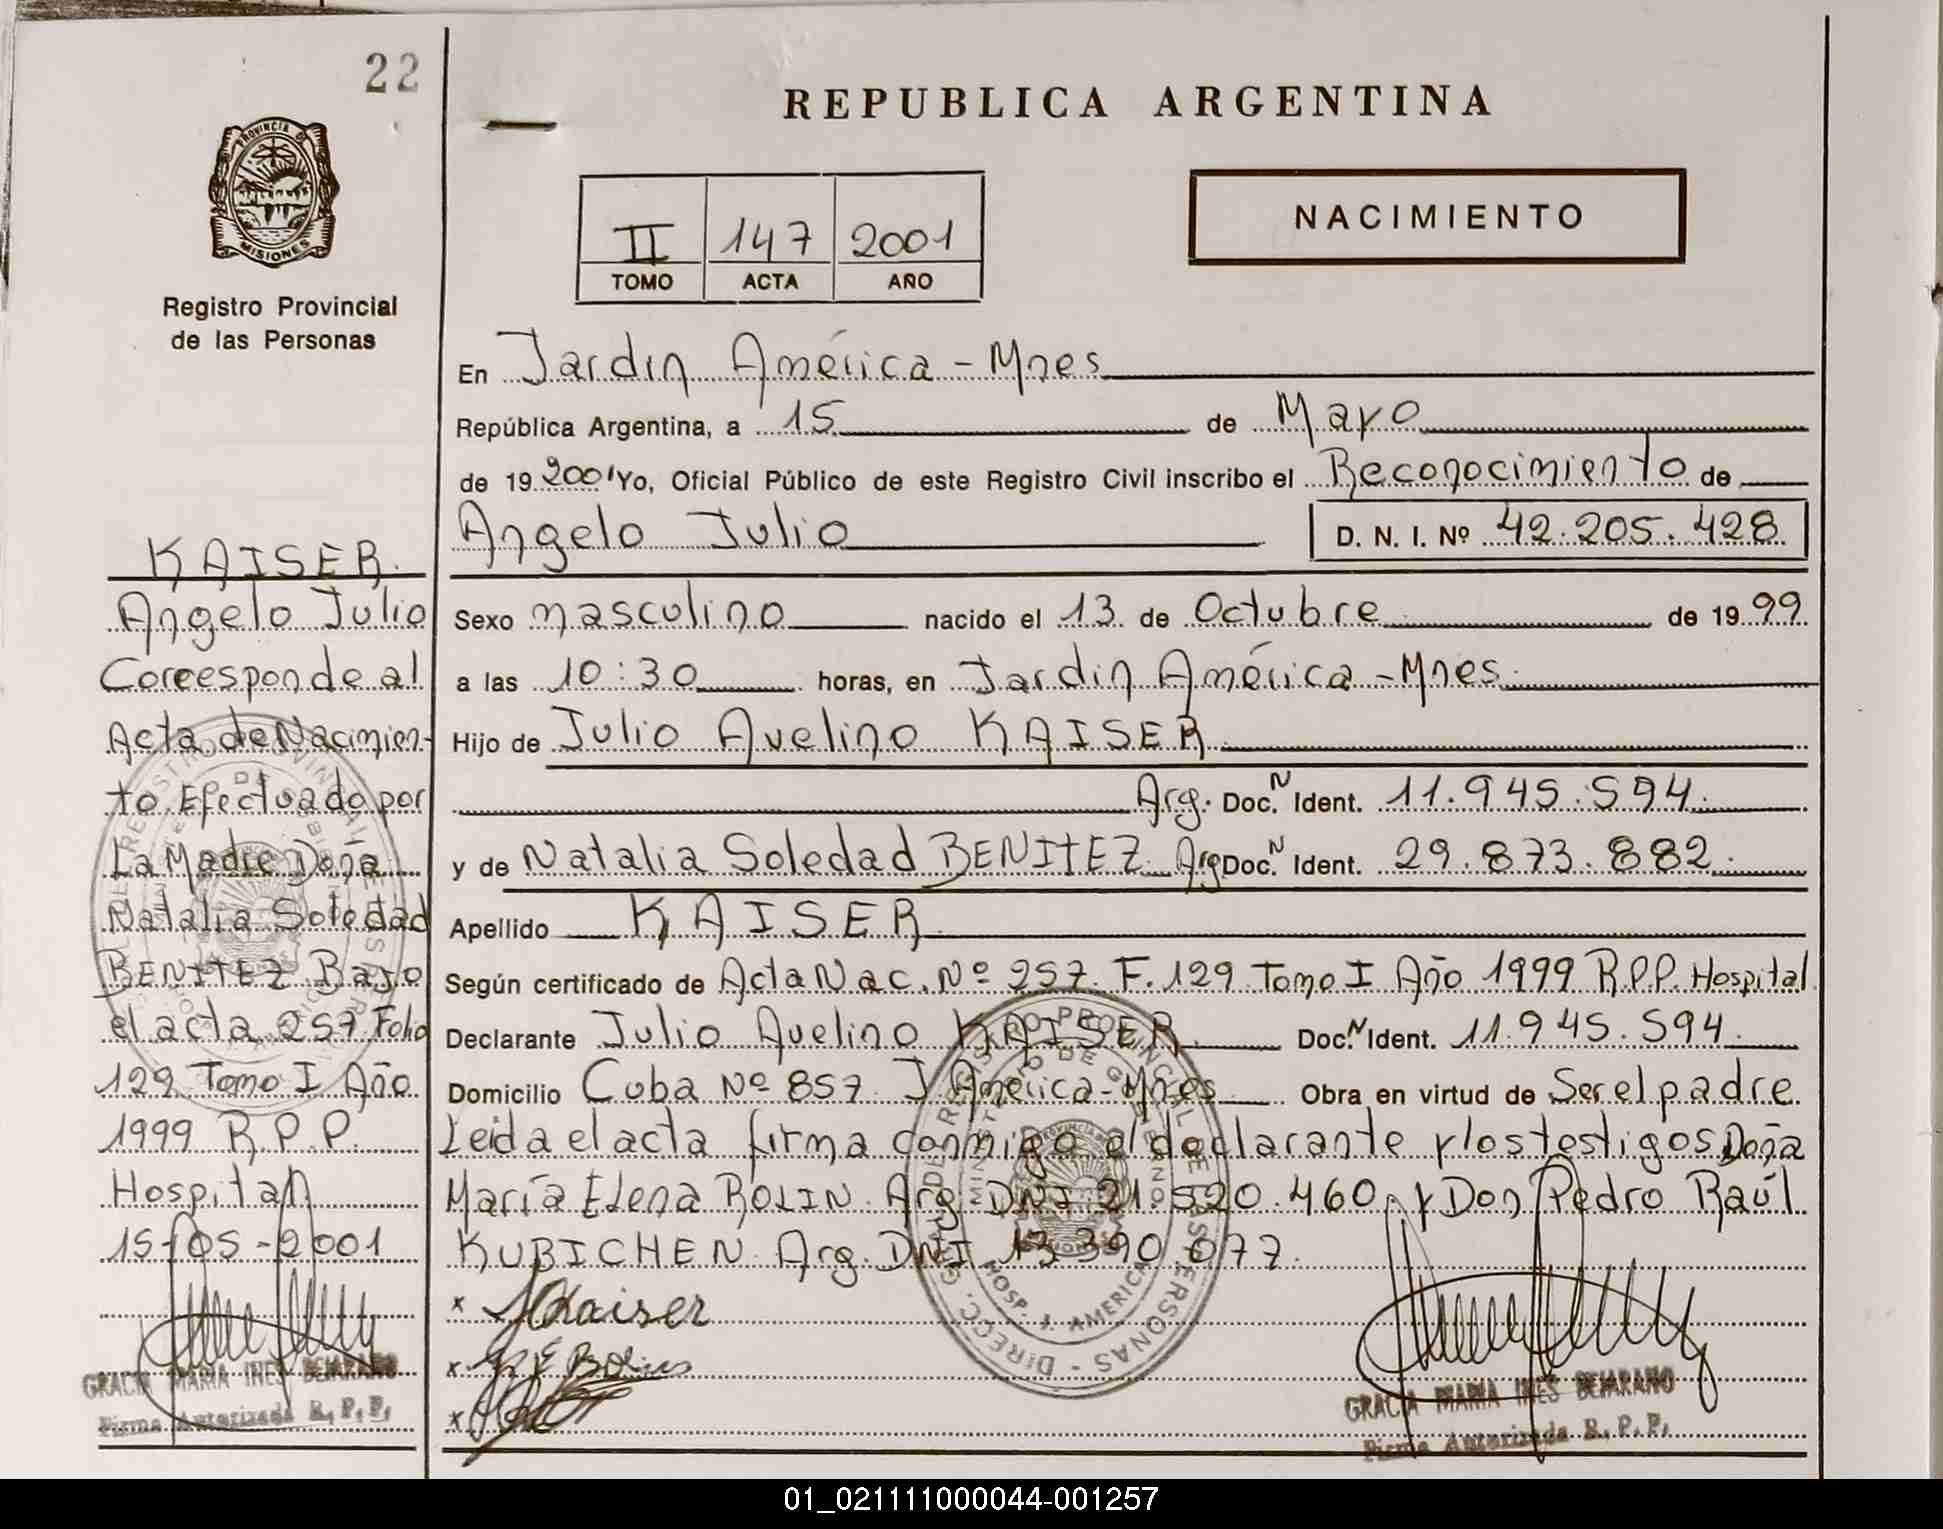 22
REPUBLICA ARGENTINA
PROVINCIA D
MISIONES
Registro Provincial
de las Personas
II 147 2001
TOMO ACTA AÑO
NACIMIENTO
En Jardín América - Mnes
República Argentina, a 15 de Mayo
de 19 2001 Yo, Oficial Público de este Registro Civil inscribo el Reconocimiento de
Angelo Julio D. N. I. Nº 42.205.428
Sexo masculino nacido el 13 de Octubre de 1999
a las 10:30 horas, en Jardín América - Mnes
Hijo de Julio Avelino KAISER
Arg. Doc.N Ident. 11.945.594
y de Natalia Soledad BENITEZ Arg Doc.N Ident. 29.873.882
Apellido KAISER
Según certificado de Acta Nac. Nº 257 F. 129 Tomo I Año 1999 R.P.P. Hospital
Declarante Julio Avelino KAISER Doc.N Ident. 11.945.594
Domicilio Cuba Nº 857 J. América - Mnes Obra en virtud de Ser el padre
Leida el acta firma conmigo el declarante y los testigos Doña
María Elena ROLIN Arg. DNI 21.520.460 y Don Pedro Raúl
KUBICHEN Arg. DNI 13.390.077
x JKaiser
x
x
KAISER
Angelo Julio
Corresponde al
Acta de Nacimien-
to Efectuado por
La Madre Doña
Natalia Soledad
BENITEZ Bajo
el acta 257 Folio
129 Tomo I Año
1999 R.P.P.
Hospital
15-05-2001
GRACIA MARIA INES BEJARANO
Firma Autorizada R.P.P.
GRACIA MARIA INES BEJARANO
Firma Autorizada R.P.P.
DIRECC. GRAL. DE REGISTRO PROVINCIAL DE LAS PERSONAS
MINISTERIO DE GOBIERNO
HOSP. J. AMERICA
01_021111000044-001257